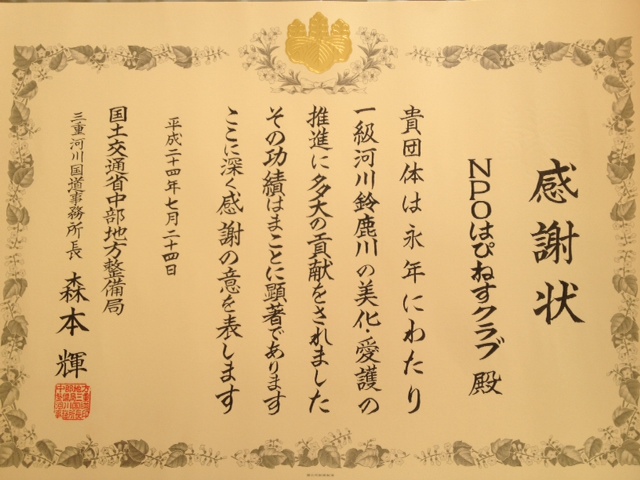 感謝状
NPOはぴねすクラブ 殿
貴団体は永年にわたり
一級河川鈴鹿川の美化・愛護の
推進に多大の貢献をされました
その功績はまことに顕著であります
ここに深く感謝の意を表します
平成二十四年七月二十四日
国土交通省中部地方整備局
三重河川国道事務所長 森本 輝